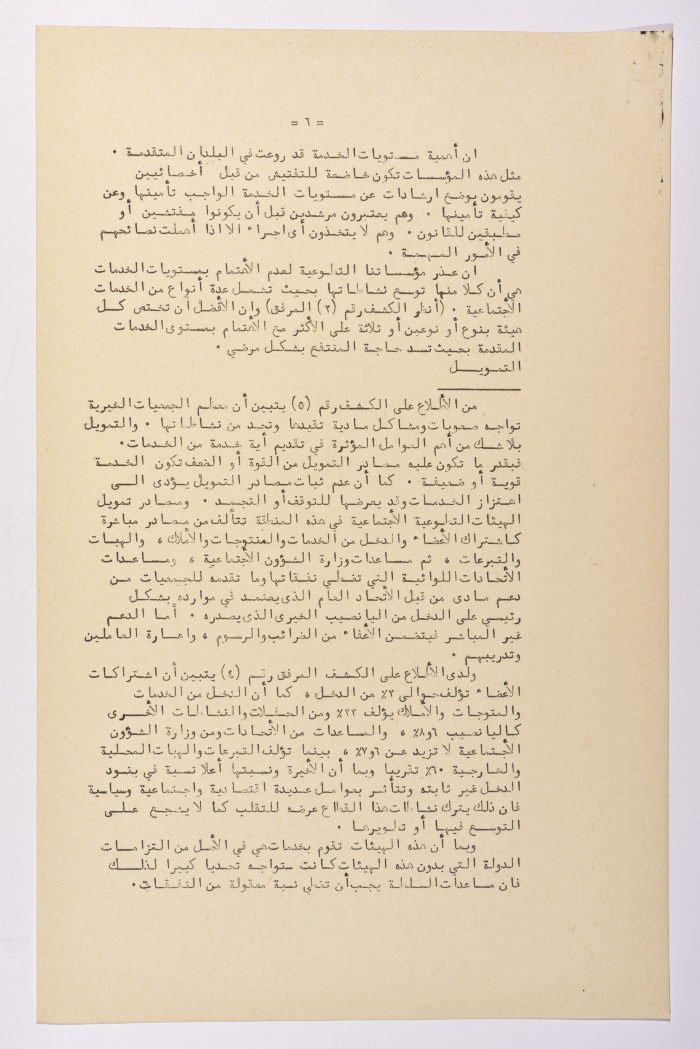 = ٦ =
ان أهمية مستويات الخدمة قد روعت في البلدان المتقدمة ٠
مثل هذه المؤسسات تكون خاضعة للتفتيش من قبل أخصائيين
يقومون بوضع ارشادات عن مستويات الخدمة الواجب تأمينها وعن
كيفية تأمينها ٠ وهم يعتبرون مرشدين قبل أن يكونوا مفتشين أو
مطبقين للقانون ٠ وهم لا يتخذون أى اجراء الا اذا أهملت نصائحهم
في الأمور المهمة ٠
ان عذر مؤسساتنا التطوعية لعدم الأهتمام بمستويات الخدمات
هي أن كلا منها توسع نشاطاتها بحيث تشمل عدة أنواع من الخدمات
الأجتماعية ٠ (أنظر الكشف رقم (٢) المرفق) وان الأفضل أن تختص كل
هيئة بنوع أو نوعين أو ثلاثة على الأكثر مع الاهتمام بمستوى الخدمات
المقدمة بحيث تسد حاجة المنتفع بشكل مرضي ٠
التمويل
من الأطلاع على الكشف رقم (٥) يتبين أن معظم الجمعيات الخيرية
تواجه صعوبات ومشاكل مادية تقيدها وتحد من نشاطاتها ٠ والتمويل
بلا شك من أهم العوامل المؤثرة في تقديم أية خدمة من الخدمات٠
فبقدر ما تكون عليه مصادر التمويل من القوة أو الضعف تكون الخدمة
قوية أو ضعيفة ٠ كما أن عدم ثبات مصادر التمويل يؤدى الى
اهتزاز الخدمات وقد يعرضها للتوقف أو التجمد ٠ ومصادر تمويل
الهيئات التطوعية الأجتماعية في هذه المنطقة تتألف من مصادر مباشرة
كاشتراك الأعضاء والدخل من الخدمات والمنتوجات والأملاك ، والهبات
والتبرعات ، ثم مساعدات وزارة الشؤون الأجتماعية ، ومساعدات
الأتحادات اللوائية التي تغطي نفقاتها وما تقدمه للجمعيات من
دعم مادى من قبل الأتحاد العام الذى يعتمد في موارده بشكل
رئيسي على الدخل من اليانصيب الخيرى الذى يصدره ٠ أما الدعم
غير المباشر فيتضمن الأعفاء من الضرائب والرسوم ، واعارة العاملين
وتدريبهم ٠
ولدى الأطلاع على الكشف المرفق رقم (٤) يتبين أن اشتراكات
الأعضاء تؤلف حوالى ٢٪ من الدخل ، كما أن الدخل من الخدمات
والمتوجات والأملاك يؤلف ٢٣٪ ومن الحفلات والنشاطات الأخرى
كاليانصيب ٨و٦٪ ، والمساعدات من الأتحادات ومن وزارة الشؤون
الأجتماعية لا تزيد عن ٧و٦٪ ، بينما تؤلف التبرعات والهبات المحلية
والخارجية ٦٠٪ تقريبا وبما أن الأخيرة ونسبتها أعلا نسبة في بنود
الدخل غير ثابته وتتأثر بعوامل عديدة اقتصادية واجتماعية وسياسية
فان ذلك يترك نشاطات هذا القطاع عرضه للتقلب كما لا يشجع على
التوسع فيها أو تطويرها ٠
وبما أن هذه الهيئات تقوم بخدمات هي في الأصل من التزامات
الدولة التي بدون هذه الهيئات كانت ستواجه تحديا كبيرا لذلك
فان مساعدات السلطة يجب أن تغطي نسبة معقولة من النفقات٠